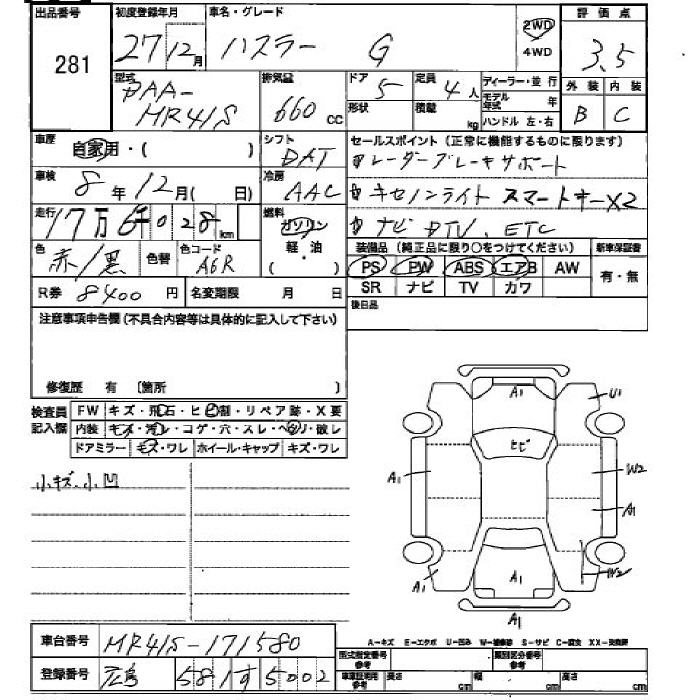 出品番号 初度登録年月 車名・グレード 評価点
281 27年12月 ハスラー G 2WD 4WD 3.5
型式 DAA-MR41S 排気量 660 cc ドア 5 定員 4人 ディーラー・並行
形状 積載 kg モデル年式 年 ハンドル 左・右
外装 内装
B C
車歴 自家用・( ) シフト DAT セールスポイント (正常に機能するものに限ります)
レーダーブレーキサポート
車検 8年12月( 日) 冷房 AAC
キセノンライト スマートキーX2
走行 17万6千028km 燃料 ガソリン 軽・油 ( )
ナビ DTV、ETC
色 赤/黒 色替 色コード A6R
装備品 (純正品に限り○をつけてください) 新車保証書
PS PW ABS エアB AW 有・無
SR ナビ TV カワ
R券 8400円 名変期限 月 日
後日品
注意事項申告欄(不具合内容等は具体的に記入して下さい)
修復歴 有 〔箇所 〕
検査員記入欄
FW キズ・飛石・ヒビ割・リペア跡・X要
内装 キズ・汚レ・コゲ・穴・スレ・ヘタリ・破レ
ドアミラー キズ・ワレ ホイール・キャップ キズ・ワレ
小キズ、小凹
A1 U1
ヒビ
A1 W2
A1
A1 A1 W2
車台番号 MR41S-171580
登録番号 広島 581 す 5002
A-キズ E-エクボ U-凹み W-補修跡 S-サビ C-腐食 XX-交換済
型式指定番号 参考 類別区分番号 参考
車庫証明用 参考 長さ cm 幅 cm 高さ cm